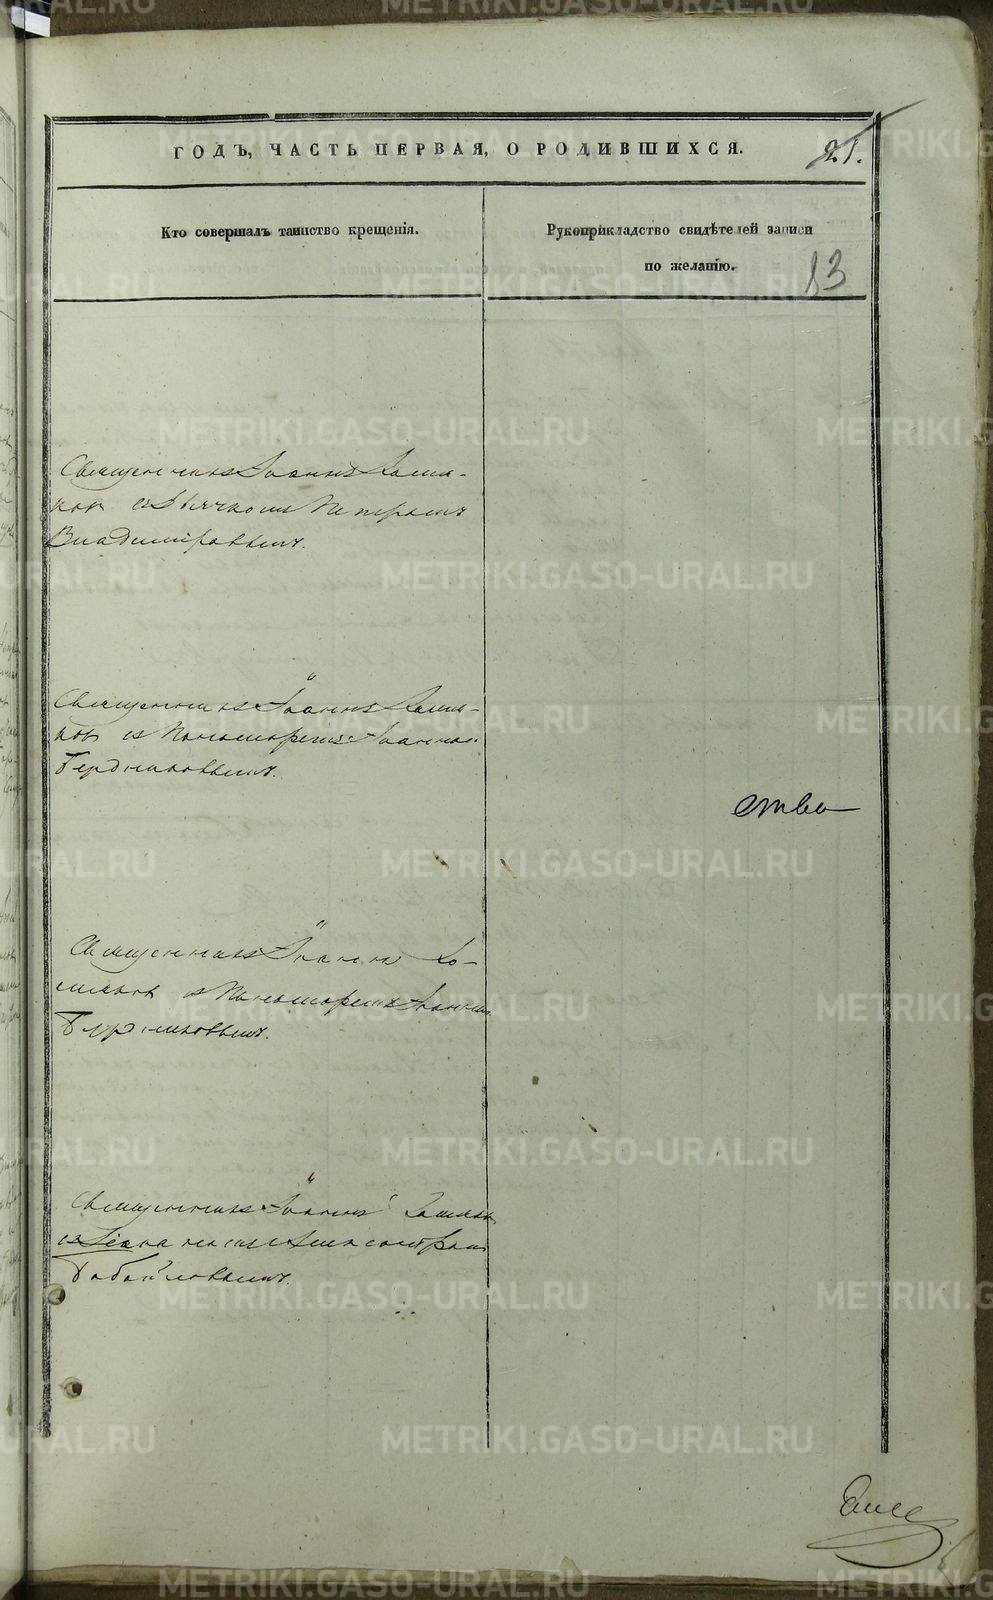 ГОДЪ, ЧАСТЬ ПЕРВАЯ, О РОДИВШИХСЯ.
21.
Кто совершалъ таинство крещенія.
Рукоприкладство свидѣтелей записи
по желанію.
83
Священникъ Іоаннъ Хомя-
ковъ съ Дьячкомъ Петромъ
Владиміровымъ.
Священникъ Іоаннъ Хомя-
ковъ съ Пономаремъ Іоанномъ
Бердниковымъ.
ства
Священникъ Іоаннъ Хо-
мяковъ съ Пономаремъ Іоанномъ
Бердниковымъ.
Священникъ Іоаннъ Хомяковъ
съ Діакономъ Александромъ
METRIKI.GASO-URAL.RU